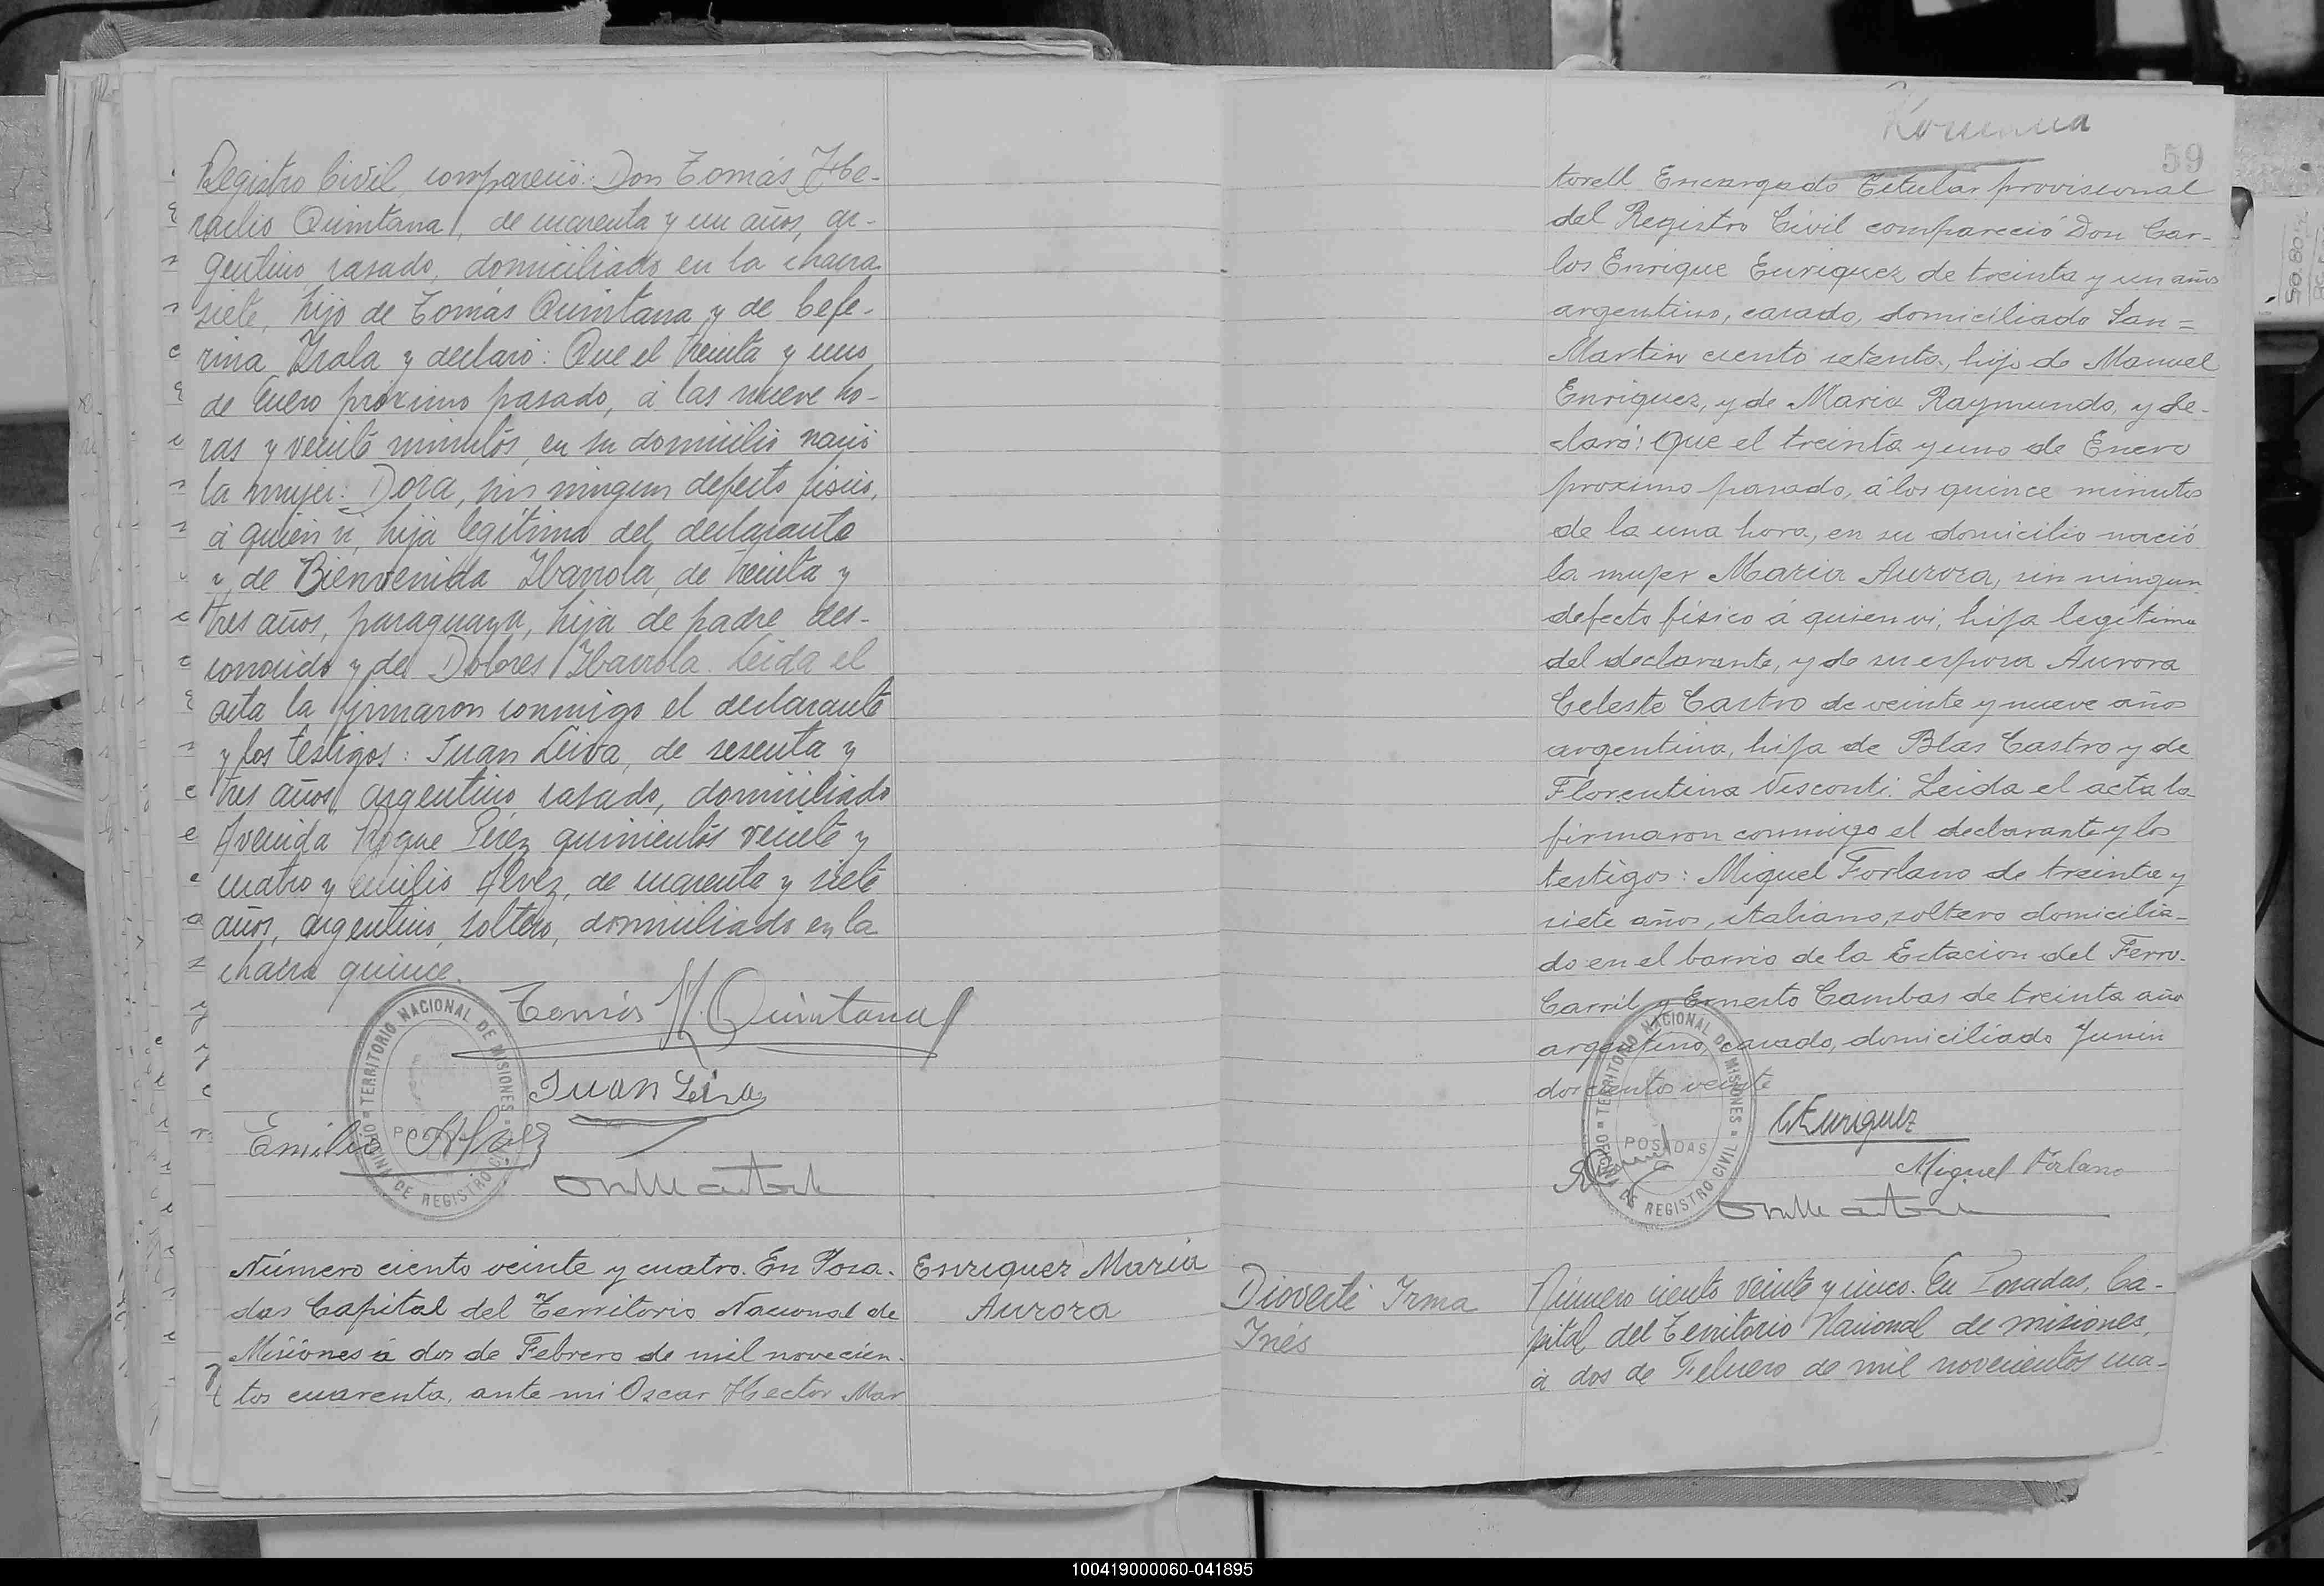 Registro Civil compareció: Don Tomás He-
raclio Quintana, de cuarenta y un años, ar-
gentino, casado, domiciliado en la chacra
siete, hijo de Tomás Quintana y de Cefe-
rina Irala y declaró: Que el treinta y uno
de Enero próximo pasado, á las nueve ho-
ras y veinte minutos, en su domicilio nació
la mujer: Dora, sin ningun defecto físico,
á quien vi, hija legítima del declarante
y de Bienvenida Ibarrola, de treinta y
tres años, paraguaya, hija de padre des-
conocido y de Dolores Ibarrola. Leida el
acta la firmaron conmigo el declarante
y los testigos: Juan Leiva, de sesenta y
tres años, argentino casado, domiciliado
Avenida Roque Pérez quinientos veinte y
cuatro y Emilio Alvez, de cuarenta y siete
años, argentino, soltero, domiciliado en la
chacra quince.
Tomás H. Quintana
Juan Leiva
Emilio Alvez
TERRITORIO NACIONAL DE MISIONES
OFICINA DE REGISTRO CIVIL
Número ciento veinte y cuatro. En Posa-
das Capital del Territorio Nacional de
Misiones á dos de Febrero de mil novecien-
tos cuarenta, ante mi Oscar Hector Mar
Enriquez Maria
Aurora
59
torell Encargado Titular provisional
del Registro Civil compareció Don Car-
los Enrique Enriquez de treinta y un años
argentino, casado, domiciliado San=
Martin ciento setenta, hijo de Manuel
Enriquez, y de Maria Raymundo, y de-
claró: Que el treinta y uno de Enero
proximo pasado, á los quince minutos
de la una hora, en su domicilio nació
la mujer Maria Aurora, sin ningun
defecto físico á quien vi, hija legítima
del declarante, y de su esposa Aurora
Celeste Castro de veinte y nueve años
argentina, hija de Blas Castro y de
Florentina Visconti. Leida el acta la
firmaron conmigo el declarante y los
testigos: Miguel Forlano de treinta y
siete años, italiano, soltero domicilia-
do en el barrio de la Estacion del Ferro-
Carril y Ernesto Cambas de treinta año
argentino, casado, domiciliado Junin
doscientos veinte
CEEnriquez
Miguel Forlano
TERRITORIO NACIONAL DE MISIONES
POSADAS
OFICINA DE REGISTRO CIVIL
Dioverti Irma
Inés
Número ciento veinte y cinco. En Posadas, Ca-
pital del Territorio Nacional de Misiones,
á dos de Febrero de mil novecientos cua-
100419000060-041895